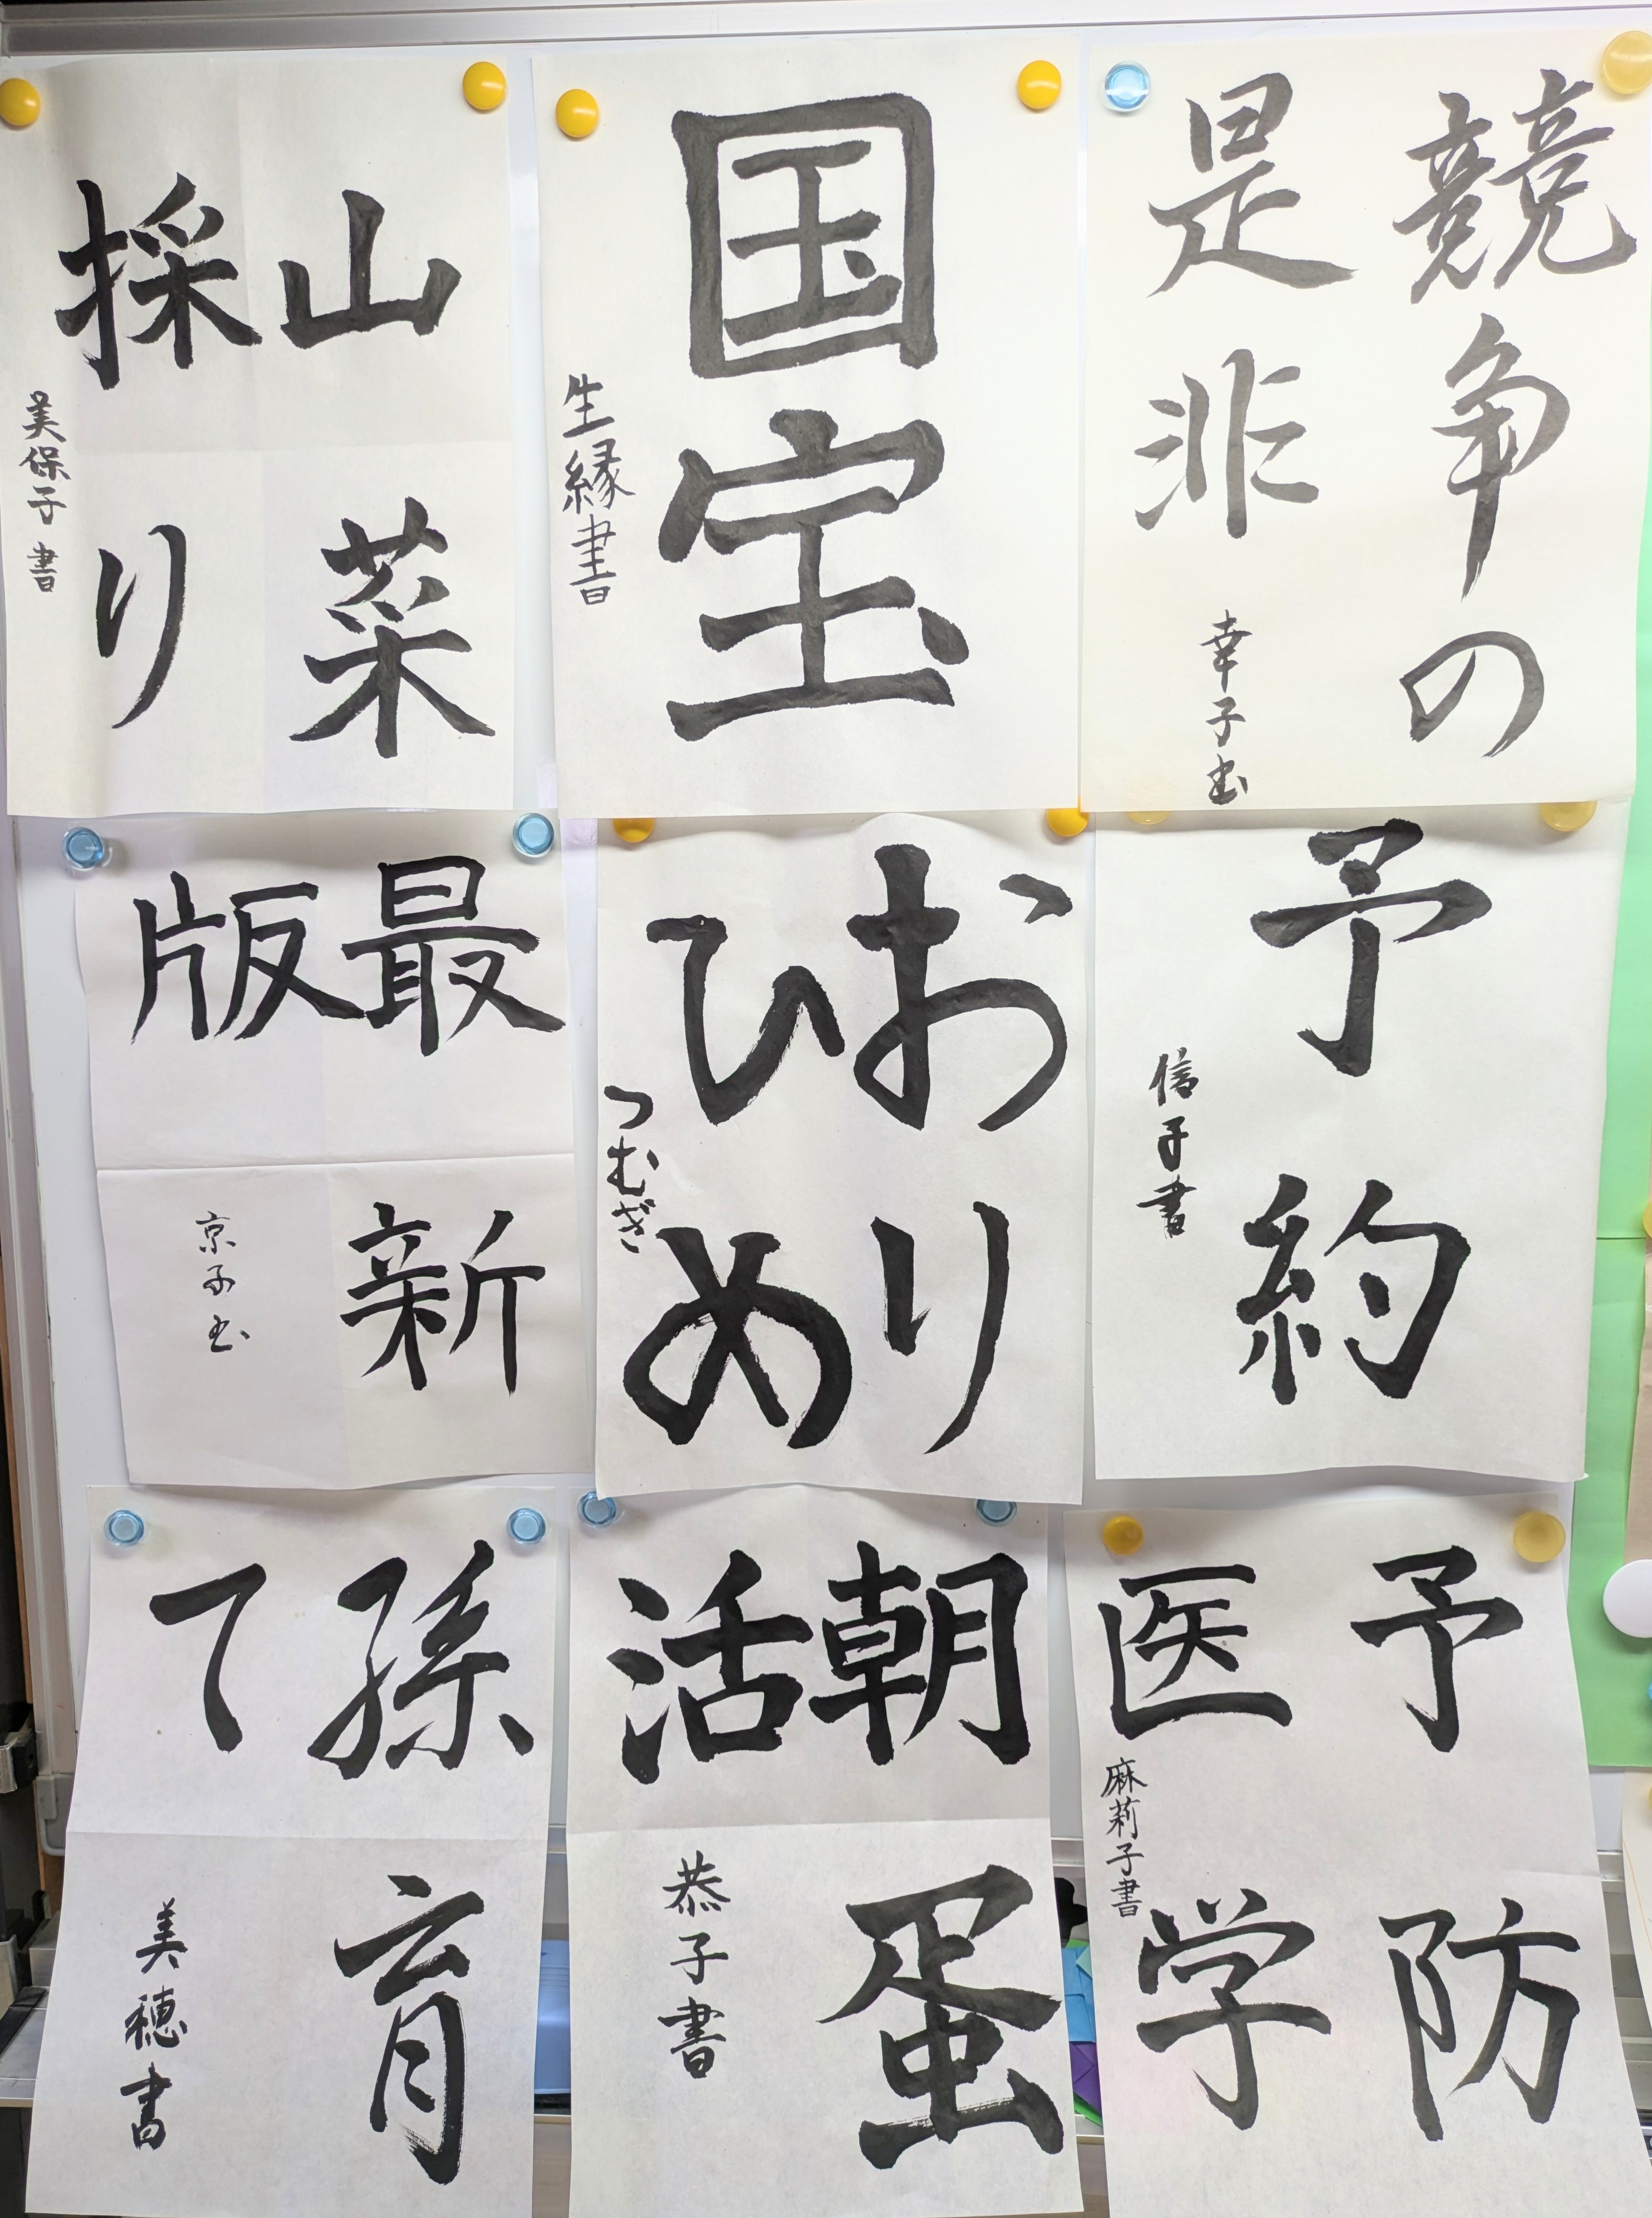 競争の
是非
幸子书
国宝
生縁書
山菜
採り
美保子書
予約
信子書
おり
ひめ
つむぎ
最新
版
京子书
予防
医学
麻莉子書
朝蛋
活
恭子書
孫育
て
美穂書